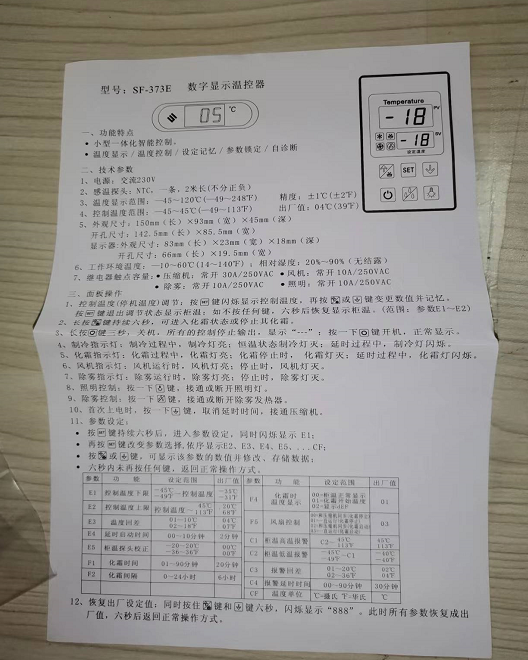 型号：SF-373E 数字显示温控器
05 ℃
Temperature
-18 PV
-18 SV
设定温度
SET
一、功能特点
• 小型一体化智能控制。
• 温度显示/温度控制/设定记忆/参数锁定/自诊断
二、技术参数
1、电源：交流230V
2、感温探头：NTC，一条，2米长(不分正负)
3、温度显示范围：—45～120℃(—49～248℉) 精度：±1℃(±2℉)
4、控制温度范围：—45～45℃(—49～113℉) 出厂值：04℃(39℉)
5、外观尺寸：150mm(长)×93mm(宽)×45mm(深)
开孔尺寸：142.5mm(长)×85.5mm(宽)
显示器:外观尺寸：83mm(长)×23mm(宽)×18mm(深)
开孔尺寸：66mm(长)×19.5mm(宽)
6、工作环境温度：—10～60℃(14～140℉)；相对湿度：20%～90%(无结露)
7、继电器触点容量：• 压缩机：常开 30A/250VAC • 风机：常开 10A/250VAC
• 除雾：常开 10A/250VAC • 照明：常开 10A/250VAC
三、面板操作
1、控制温度(停机温度)调节：按SET键闪烁显示控制温度，再按或键变更数值并记忆。
按SET键退出调节状态显示柜温；如不按任何键，六秒后恢复显示柜温。(范围：参数E1~E2)
2、长按键持续六秒，可进入化霜状态或停止其化霜。
3、长按键三秒，关机，所有的控制停止输出，显示"---"；按一下键开机，正常显示。
4、制冷指示灯：制冷过程中，制冷灯亮；恒温状态制冷灯灭；延时过程中，制冷灯闪烁。
5、化霜指示灯：化霜过程中，化霜灯亮；化霜停止时，化霜灯灭；延时过程中，化霜灯闪烁。
6、风机指示灯：风机运行时，风机灯亮；停止时，风机灯灭。
7、除雾指示灯：除雾运行时，除雾灯亮；停止时，除雾灯灭。
8、照明控制：按一下键，接通或断开照明灯。
9、除雾控制：按一下键，接通或断开除雾发热器。
10、首次上电时，按一下键，取消延时时间，接通压缩机。
11、参数设定：
• 按SET键持续六秒后，进入参数设定，同时闪烁显示 E1；
• 再按SET键改变参数选择,依序显示E2、E3、E4、E5，...CF；
• 按或键，可显示该参数的数值并修改、存储数据；
• 六秒内未再按任何键，返回正常操作方式。
参数 功能 设定范围 出厂值 参数 功能 设定范围 出厂值
E1 控制温度下限 -45℃ -49℉ —控制温度
E2 控制温度上限 控制温度— 45℃ 113℉ 20℃ 68℉
E3 温度回差 01—10℃ 02—18℉ 04℃ 07℉
E4 延时启动时间 00—10分钟 2分钟
E5 柜温探头校正 -20—20℃ -36—36℉ 00℃ 00℉
F1 化霜时间 01—90分钟 20分钟
F2 化霜间隔 0—24小时 6小时
F4 化霜时温度显示 01
F5 风扇控制 03
C1 柜温高温报警 C2— 45℃ 113℉ 45℃ 113℉
C2 柜温低温报警 -45℃ -49℉ —C1 -40℃ -40℉
C3 报警回差 01—20℃ 02—36℉ 02℃ 04℉
C4 报警延时时间 00—90分钟 30分钟
CF 温度单位 C-摄氏 F-华氏 ℃
12、恢复出厂设定值：同时按住键和键六秒，闪烁显示"888"。此时所有参数恢复成出
厂值，六秒后返回正常操作方式。